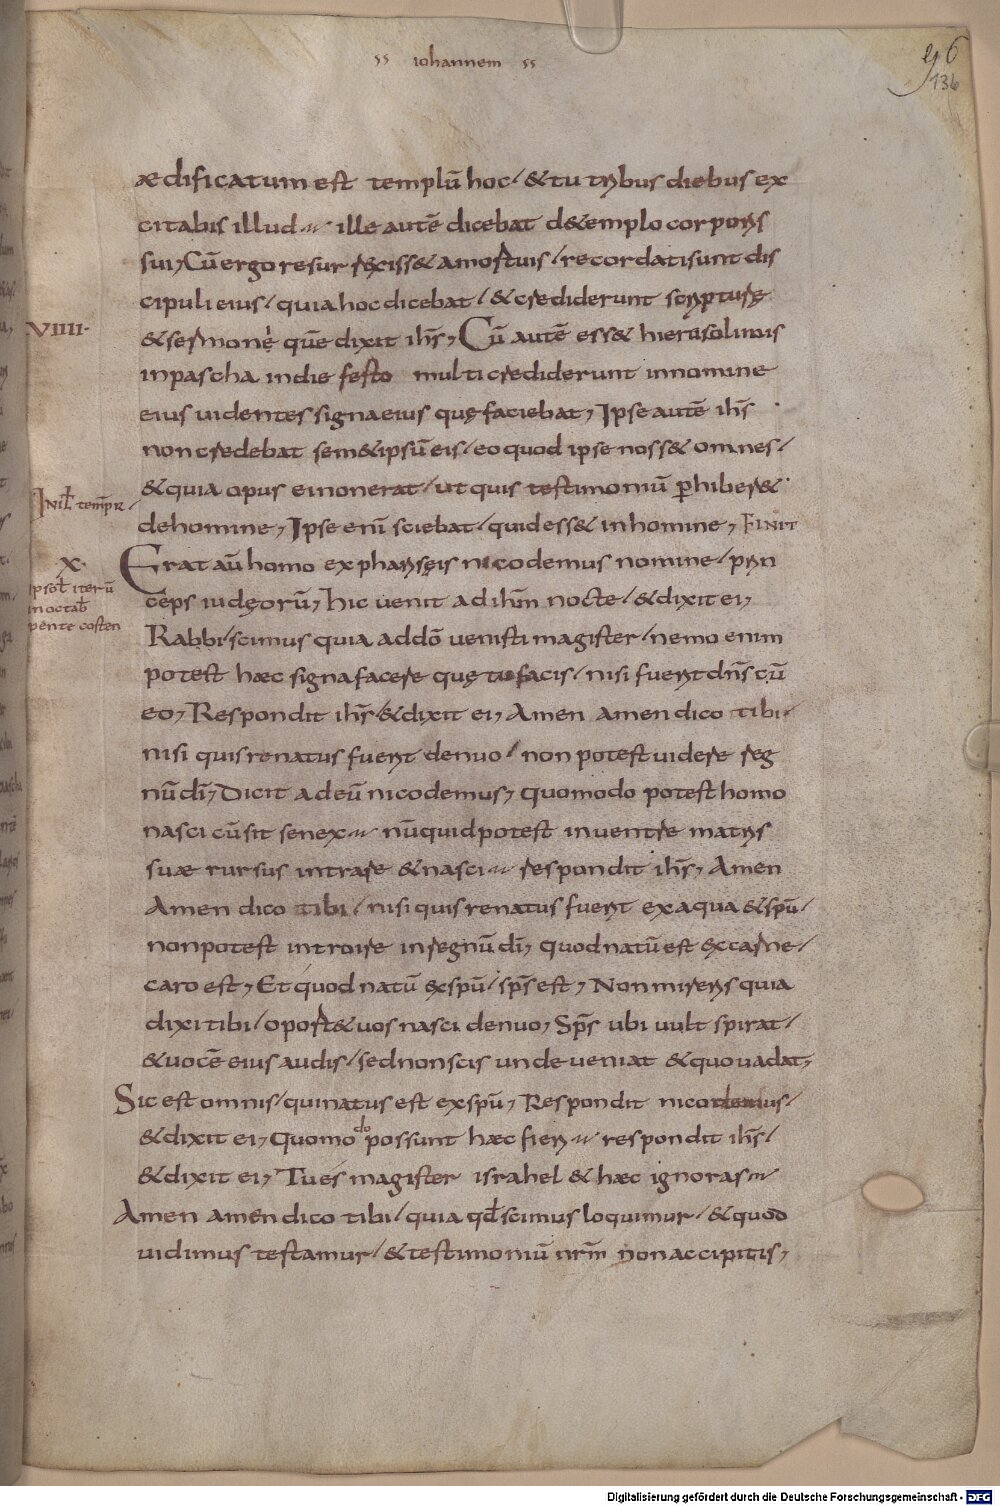 iohannem
136
ædificatum est templū hoc / & tu tribus diebus ex
citabis illud ille autē dicebat d& emplo corporis
sui, Cū ergo resurrexiss& a mortuis / recordati sunt dis
cipuli eius / quia hoc dicebat / & crediderunt scripturę
VIIII
& sermone quē dixit ih̄s, Cū autē ess& hierusolimis
in pascha in die festo multi crediderunt in nomine
eius uidentes signa eius quę faciebat, Ipse autē ih̄s
non credebat sem& ipsū eis / eo quod ipse noss& omnes /
& quia opus ei non erat / ut quis testimoniū phiber&
de homine, Ipse enī sciebat / quid ess& in homine, FINIT
X
Erat aū homo ex pharisęis nicodemus nomine / prin
iterū
ceps iudęorū, hic uenit ad ih̄m nocte / & dixit ei,
in octab
pente costen
Rabbi / scimus quia a dō uenisti magister / nemo enim
potest hæc signa facere quę tu facis / nisi fuerit dn̄s cū
eo, Respondit ih̄s / & dixit ei, Amen amen dico tibi /
nisi quis renatus fuerit denuo / non potest uidere reg
nū dī, Dicit ad eū nicodemus, quomodo potest homo
nasci cū sit senex nūquid potest in uentre matris
suæ rursus intrare & nasci respondit ih̄s, Amen
Amen dico tibi / nisi quis renatus fuerit ex aqua & spū /
non potest introire in regnū dī, quod natū est ex carne /
caro est, Et quod natū ex spū / sps est, Non mireris quia
dixi tibi / oport& uos nasci denuo, Sps ubi uult spirat /
& uocē eius audis / sed non scis unde ueniat & quo uadat,
Sic est omnis / qui natus est ex spū, Respondit nicodemus /
& dixit ei, Quomodo possunt hæc fieri respondit ih̄s /
& dixit ei, Tu es magister israhel & hæc ignoras
Amen amen dico tibi / quia qđ scimus loquimur / & quod
uidimus testamur / & testimoniū nr̄m non accipitis,
Digitalisierung gefördert durch die Deutsche Forschungsgemeinschaft - DFG